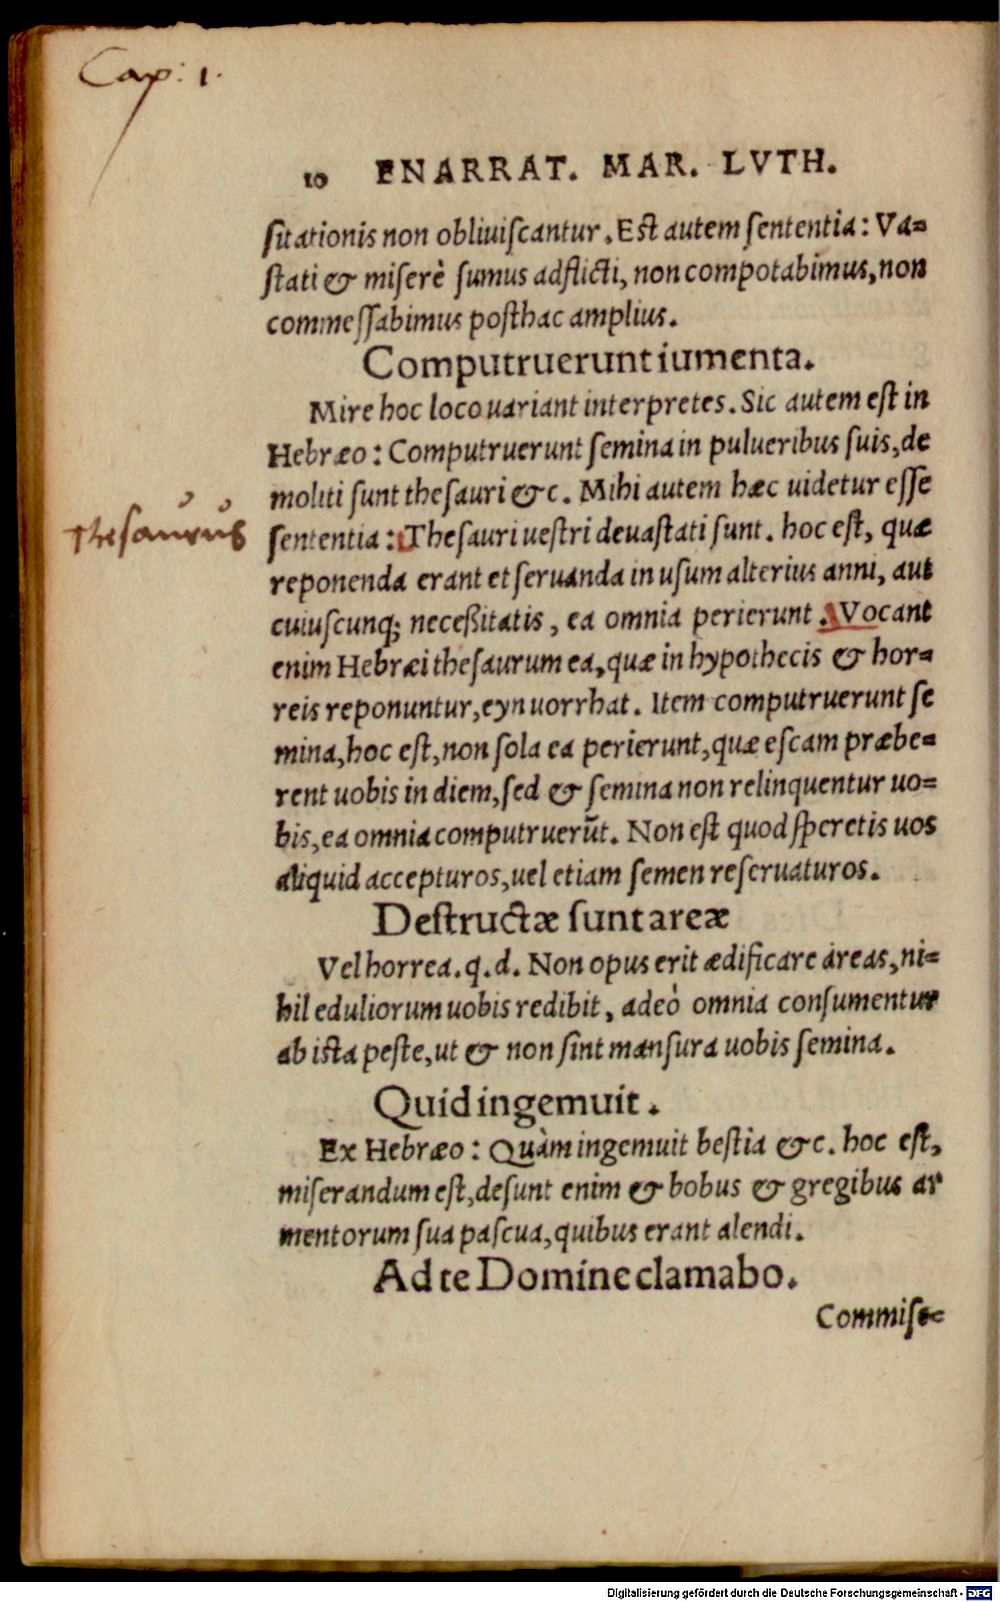 Cap: 1.
10 ENARRAT. MAR. LVTH.
sitationis non obliuiscantur. Est autem sententia: Va=
stati & miserè sumus adflicti, non compotabimus, non
commessabimus posthac amplius.
Computruerunt iumenta.
Mire hoc loco uariant interpretes. Sic autem est in
Hebræo: Computruerunt semina in pulueribus suis, de
moliti sunt thesauri &c. Mihi autem hæc uidetur esse
thesaurus
sententia: Thesauri uestri deuastati sunt. hoc est, quæ
reponenda erant et seruanda in usum alterius anni, aut
cuiuscunq; neceßitatis, ea omnia perierunt. Vocant
enim Hebræi thesaurum ea, quæ in hypothecis & hor=
reis reponuntur, eyn uorrhat. Item computruerunt se
mina, hoc est, non sola ea perierunt, quæ escam præbe=
rent uobis in diem, sed & semina non relinquentur uo=
bis, ea omnia computruerūt. Non est quod speretis uos
aliquid accepturos, uel etiam semen reseruaturos.
Destructæ sunt areæ
Vel horrea. q. d. Non opus erit ædificare areas, ni=
hil eduliorum uobis redibit, adeò omnia consumentur
ab ista peste, ut & non sint mansura uobis semina.
Quid ingemuit.
Ex Hebræo: Quàm ingemuit bestia &c. hoc est,
miserandum est, desunt enim & bobus & gregibus ar
mentorum sua pascua, quibus erant alendi.
Ad te Domine clamabo.
Commise=
Digitalisierung gefördert durch die Deutsche Forschungsgemeinschaft - DFG